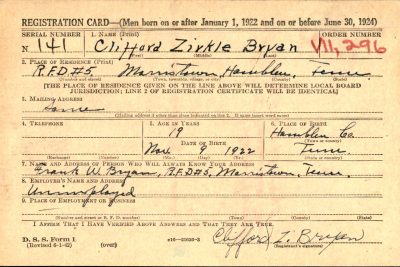 REGISTRATION CARD—(Men born on or after January 1, 1922 and on or before June 30, 1924)
SERIAL NUMBER 1. NAME (Print) ORDER NUMBER
N 141 Clifford Zirkle Bryan 11,296
(First) (Middle) (Last)
2. PLACE OF RESIDENCE (Print)
R.F.D#5, Morristown, Hamblen, Tenn
(Number and street) (Town, township, village, or city) (County) (State)
[THE PLACE OF RESIDENCE GIVEN ON THE LINE ABOVE WILL DETERMINE LOCAL BOARD
JURISDICTION; LINE 2 OF REGISTRATION CERTIFICATE WILL BE IDENTICAL]
3. MAILING ADDRESS
Same
[Mailing address if other than place indicated on line 2. If same insert word same]
4. TELEPHONE 5. AGE IN YEARS 6. PLACE OF BIRTH
19 Hamblen Co.
DATE OF BIRTH (Town or county)
Nov. 9 1922 Tenn
(Exchange) (Number) (Mo.) (Day) (Yr.) (State or country)
7. NAME AND ADDRESS OF PERSON WHO WILL ALWAYS KNOW YOUR ADDRESS
Frank W. Bryan, R.F.D#5, Morristown, Tenn.
8. EMPLOYER'S NAME AND ADDRESS
Unimployed
9. PLACE OF EMPLOYMENT OR BUSINESS
(Number and street or R. F. D. number) (Town) (County) (State)
I AFFIRM THAT I HAVE VERIFIED ABOVE ANSWERS AND THAT THEY ARE TRUE.
D. S. S. Form 1
(Revised 6-1-42) (over) Clifford Z. Bryan
(Registrant's signature)